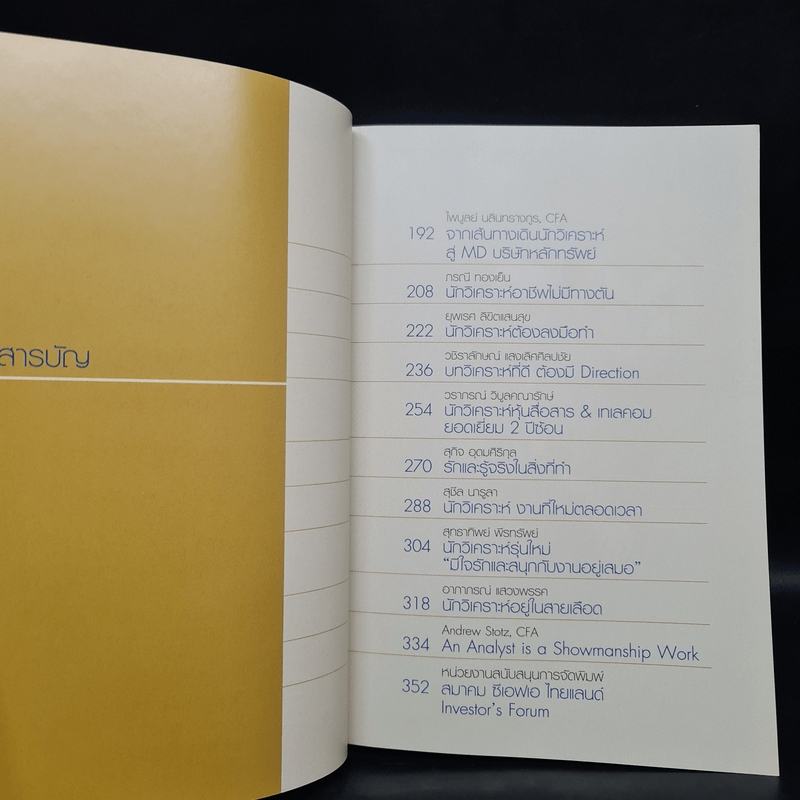 สารบัญ
ไพบูลย์ นลินทรางกูร, CFA
192 จากเส้นทางเดินนักวิเคราะห์
สู่ MD บริษัทหลักทรัพย์
ภรณี ทองเย็น
208 นักวิเคราะห์อาชีพไม่มีทางตัน
ยุพเรศ ลิขิตแสนสุข
222 นักวิเคราะห์ต้องลงมือทำ
วชิราลักษณ์ แสงเลิศศิลปชัย
236 บทวิเคราะห์ที่ดี ต้องมี Direction
วราภรณ์ วิบูลคณารักษ์
254 นักวิเคราะห์หุ้นสื่อสาร & เทเลคอม
ยอดเยี่ยม 2 ปีซ้อน
สุกิจ อุดมศิริกุล
270 รักและรู้จริงในสิ่งที่ทำ
สุชีล นารูลา
288 นักวิเคราะห์ งานที่ใหม่ตลอดเวลา
สุทธาทิพย์ พีรทรัพย์
304 นักวิเคราะห์รุ่นใหม่
“มีใจรักและสนุกกับงานอยู่เสมอ”
อาภาภรณ์ แสวงพรรค
318 นักวิเคราะห์อยู่ในสายเลือด
Andrew Stotz, CFA
334 An Analyst is a Showmanship Work
หน่วยงานสนับสนุนการจัดพิมพ์
352 สมาคม ซีเอฟเอ ไทยแลนด์
Investor's Forum